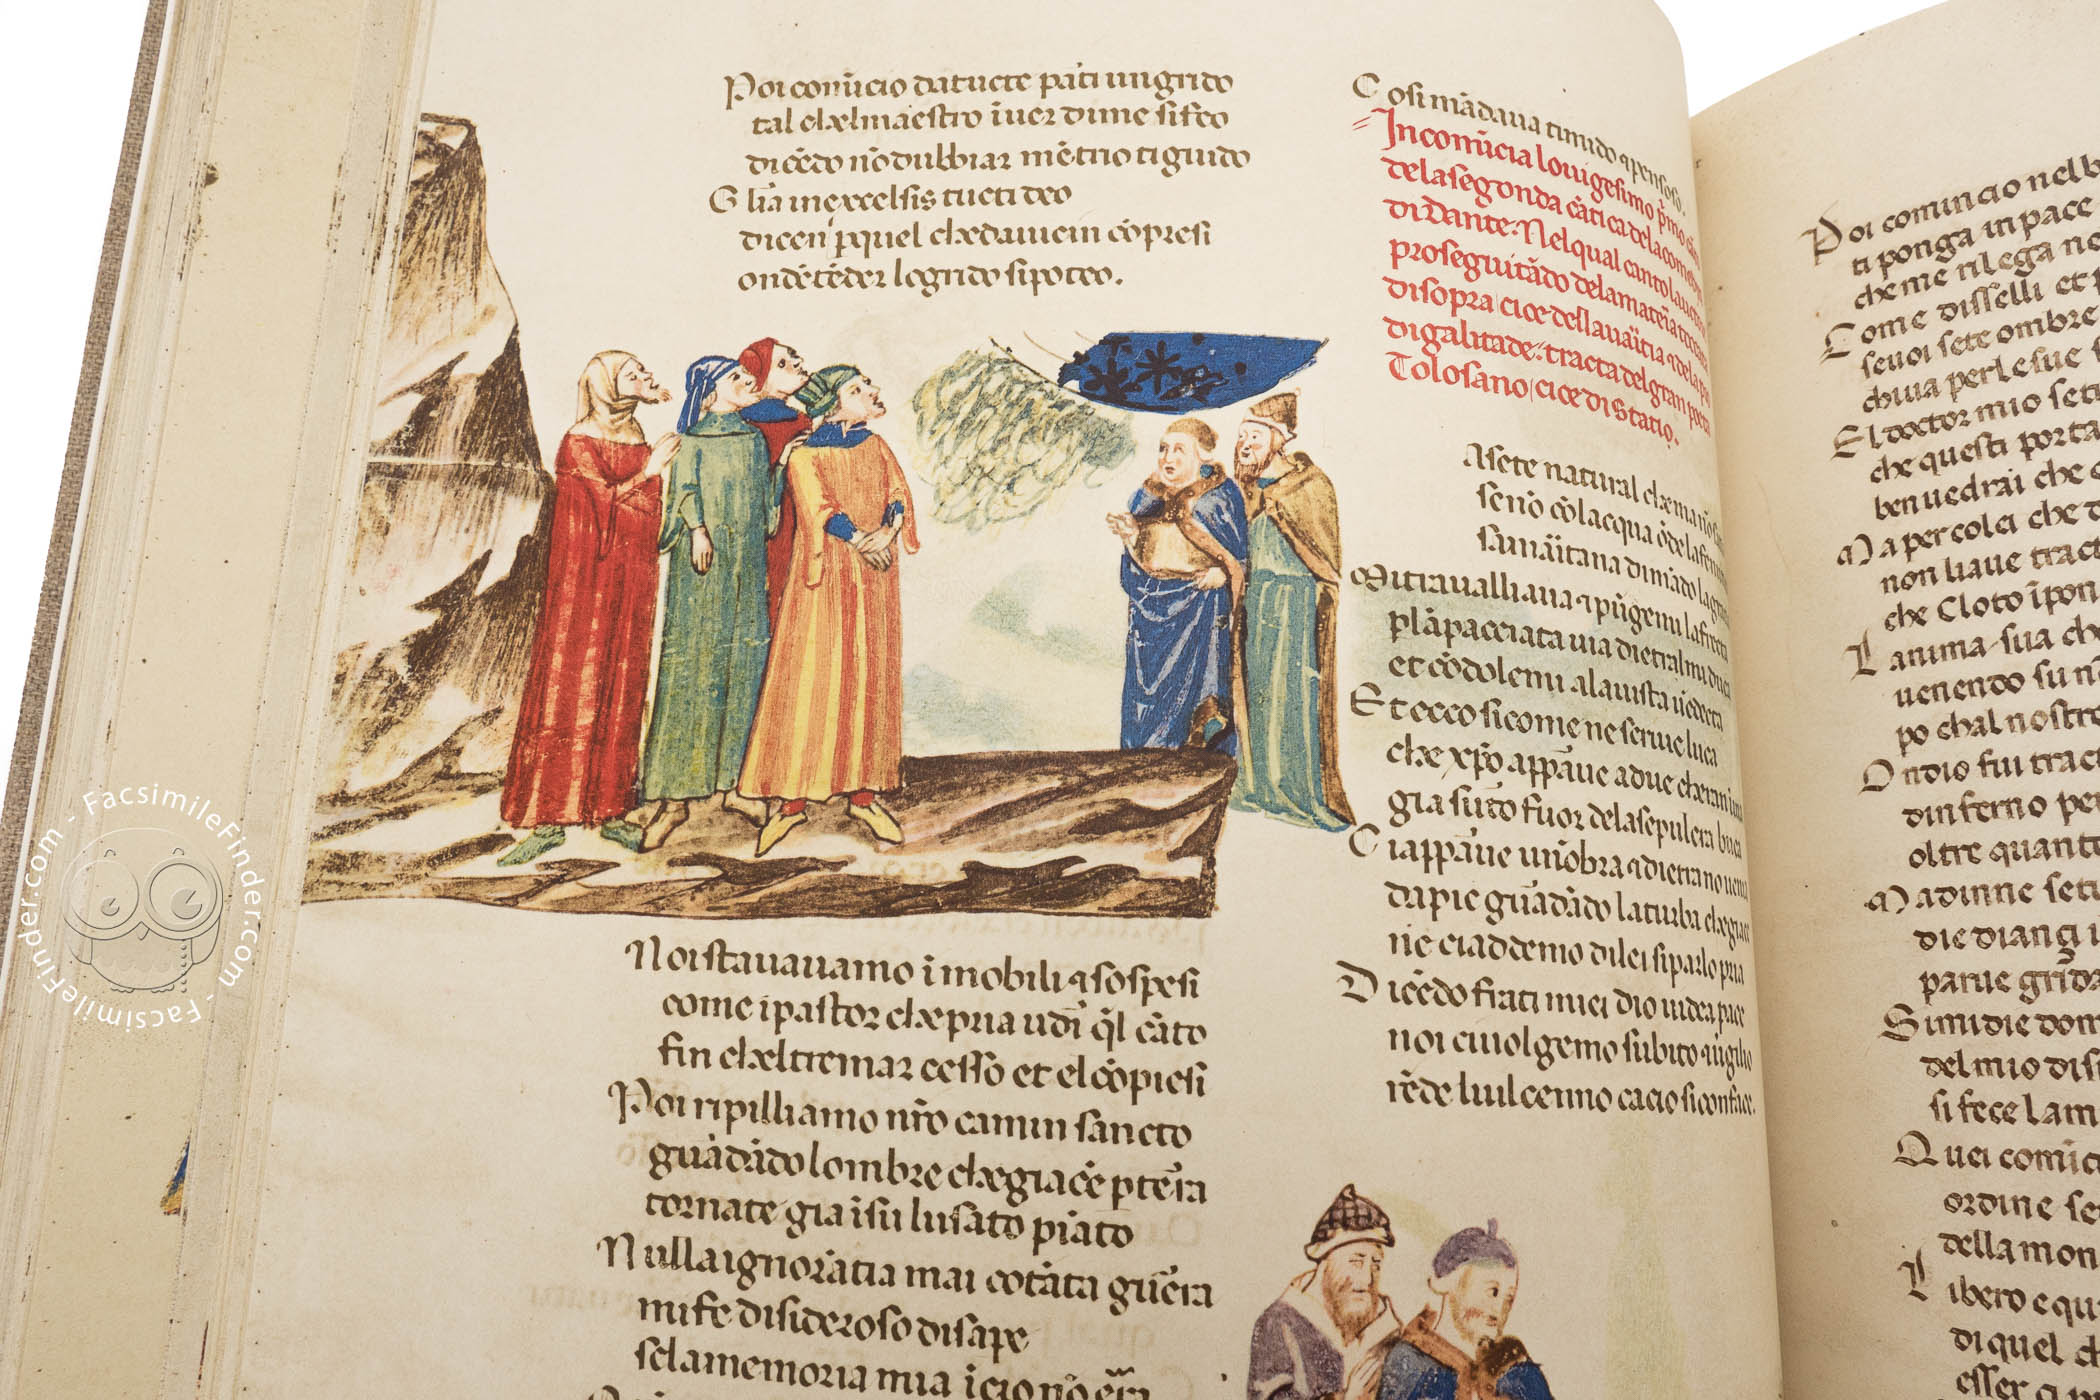 Poi comīcio da tucte pāti un grido
tal chel maestro īver di me si feo
dicēdo nō dubbiar mētrio ti guido
Glīa in excelsis tucti deo
dicen p quel che da vicin cōpresi
onde ītēder lo grido si poteo.
Noi stavavamo īmobili & sospesi
come i pastor che pria udī ql cāto
fin chel tremar cesso et el cōpiesi
Poi ripilliamo nrō camin sancto
guādādo lombre che giacē p terra
tornate gia isu lusato piāto
Nulla ignorātia mai cotāta guerra
mi fe disideroso di sape
se la memoria mia i cio nō erra
Cosi mādava timido & pensoso.
Incomīcia lo vigesimo pmo
de la segonda cātica de la comedia
di Dante. Nel qual canto lauctore
proseguitādo de la materia
di sopra cioe dellavaritia & de la
di galitade. tracta del gran poeta
Tolosano cioe di Statio.
La sete natural che mai nō
se nō cō lacqua ōde la
samaritana dimādo la gratia
Mi travalliava & pūgemi la fretta
p lāpacciata via dietral mi duca
et cōdolemi a la iusta vēdetta
Et ecco si come ne scrive luca
che xpō appāve a due cheran ī via
gia suto fuor de la sepulcra buca
Ci appāve unōbra & dietrano venia
da pie guādādo la turba che giace
ne ci addemo di lei si parlo pria
Dicēdo frati miei dio vi dea pace
noi ci volgemo subito & vigilio
rēde lui l cenno cacio si conface.
Poi comincio nel b
ti ponga in pace
che me rilega ne
Come disselli et p
se voi sete ombre
chi va per le sue s
El doctor mio set
che questi porta
ben vedrai che c
Ma per colei che d
non li ave tract
che Cloto īpon
Lanima sua ch
venendo su nō
po chal nostro
Ondio fui tract
dinferno per
oltre quante
Ma dinne se ti
die diançi i
parve grida
Si mi die dom
del mio disi
si fece la m
Quei comīci
ordine se
della mon
Libero e qu
di quel ch
esser
FacsimileFinder.com - FacsimileFinder.com - FacsimileFinder.com